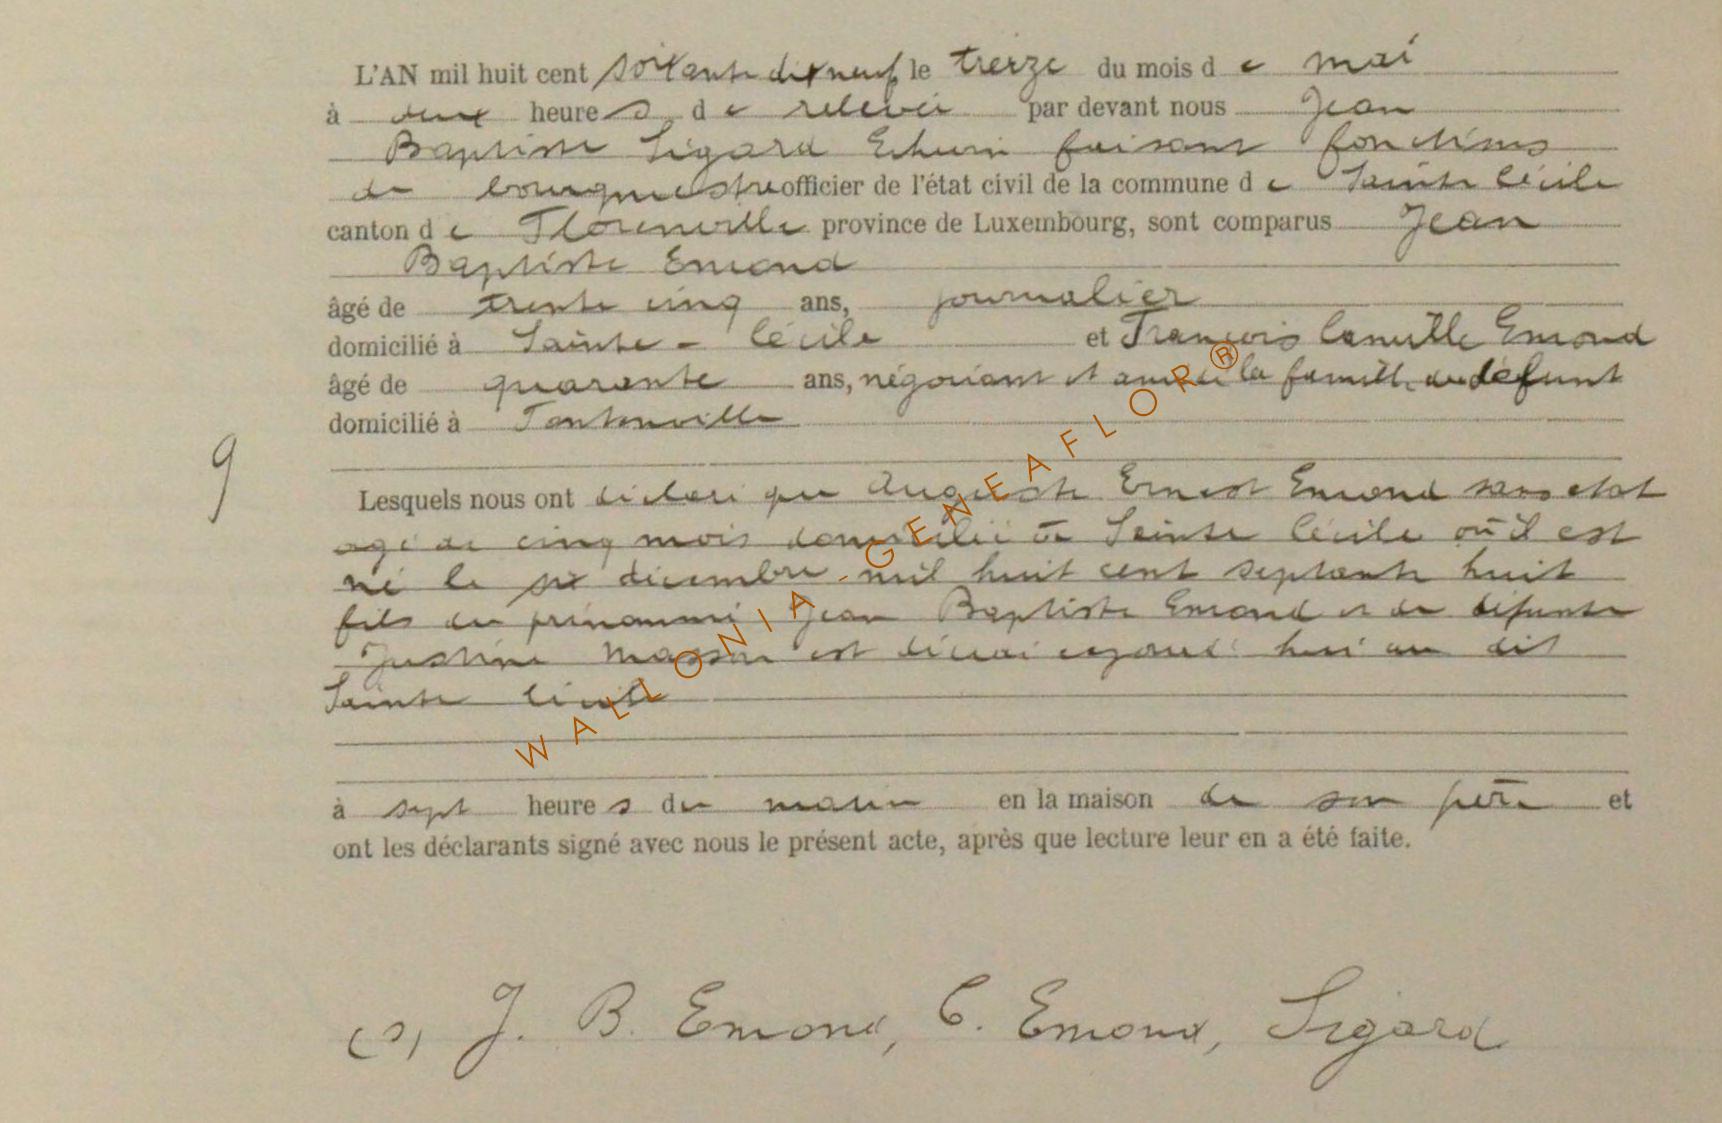 L'AN mil huit cent soixante dix neuf le treize du mois d e mai
à deux heure s d e relevée par devant nous Jean
Baptiste Sigard Echevin faisant fonctions
de bourgmestre officier de l'état civil de la commune d e Sainte Cécile
canton d e Florenville province de Luxembourg, sont comparus Jean
Baptiste Emond
âgé de trente cinq ans, journalier
domicilié à Sainte - Cécile et François Camille Emond
âgé de quarante ans, négociant et ami de la famille du défunt
domicilié à Fontenoille
9
Lesquels nous ont déclaré que Auguste Ernest Emond sans etat
agé de cinq mois domicilié à Sainte Cécile où il est
né le six décembre mil huit cent septante huit
fils du prénommé Jean Baptiste Emond et de défunte
Justine Masson est décédé aujourd'hui au dit
Sainte Cécile
à sept heure s du matin en la maison de son père et
ont les déclarants signé avec nous le présent acte, après que lecture leur en a été faite.
(s) J. B. Emond, C. Emond, Sigard
WALLONIA - GENEAFLOR®